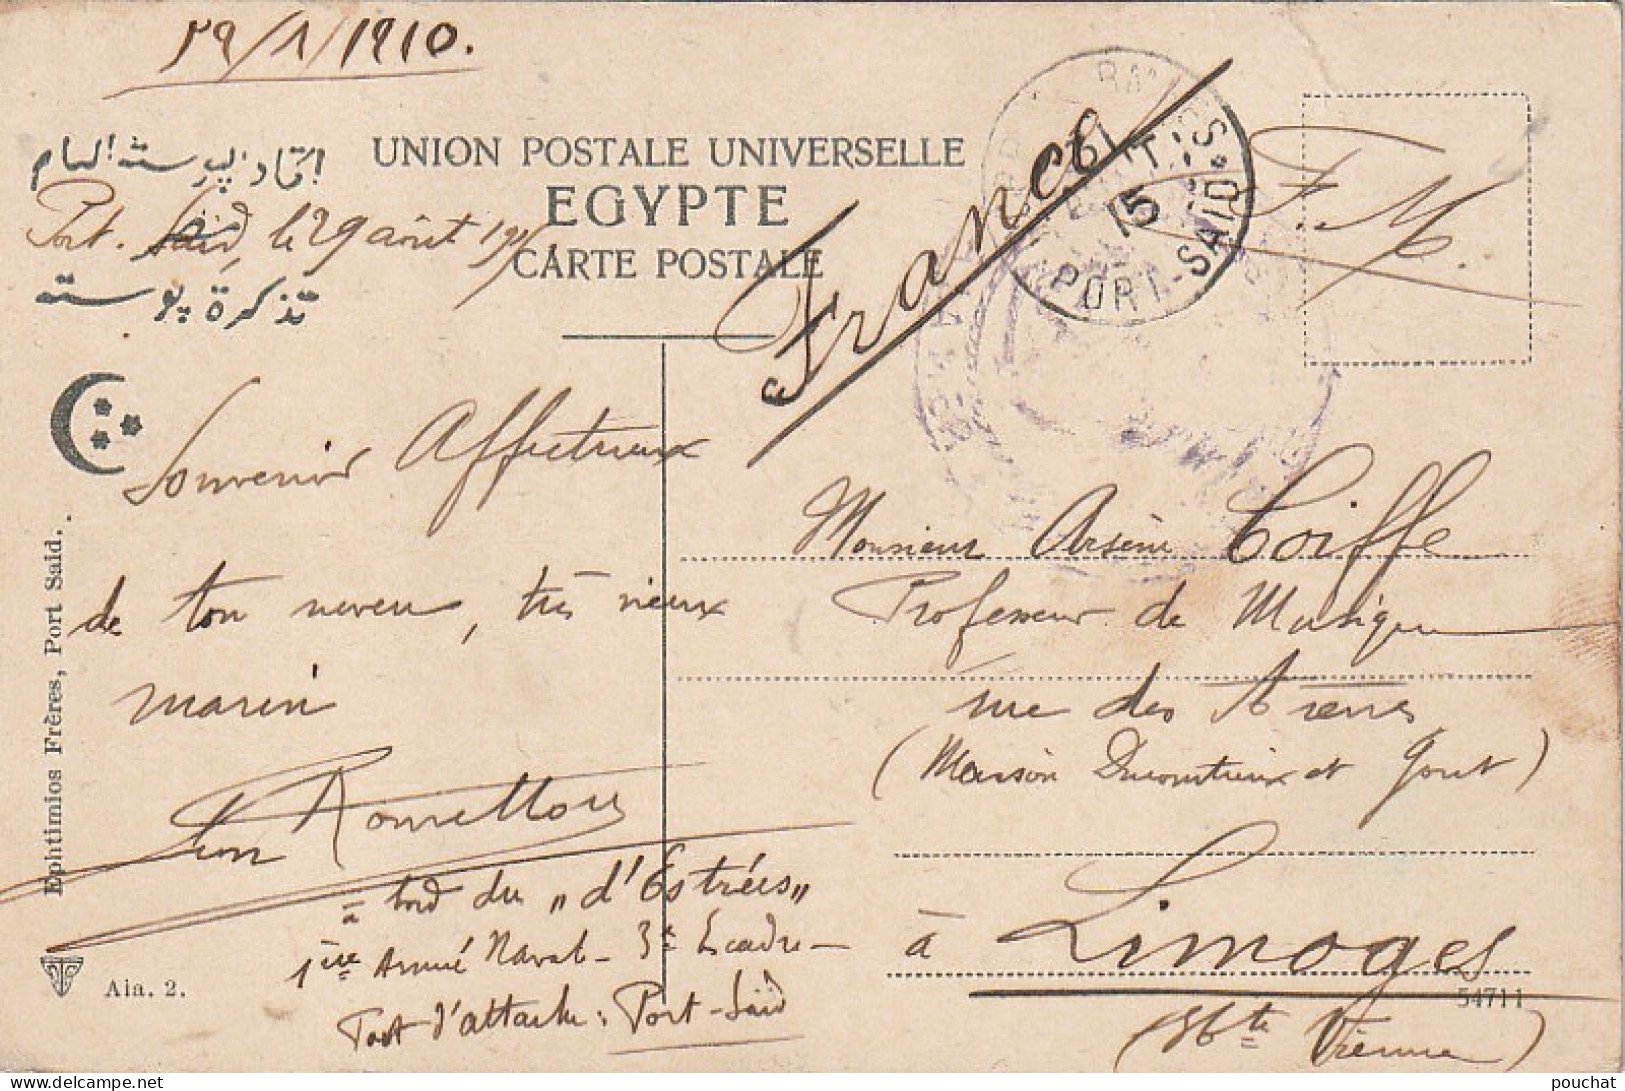 ٢٩/٨/١٩١٥.
UNION POSTALE UNIVERSELLE
EGYPTE
CARTE POSTALE
Port-Saïd, le 29 août
تذكرة پوسته
France
F.M.
PORT-SAID
15
Souvenir Affectueux
de ton neveu, très vieux
marin
à bord du „d'Estrées"
1ère Armée Navale - 3e Escadre -
Port d'attache : Port-Saïd
Monsieur Arsène Coiffe
Professeur de Musique
rue des Arènes
(Maison et Gout)
à Limoges
(Hte Vienne)
Ephtimios Frères, Port Said.
Aia. 2.
54711
pouchat